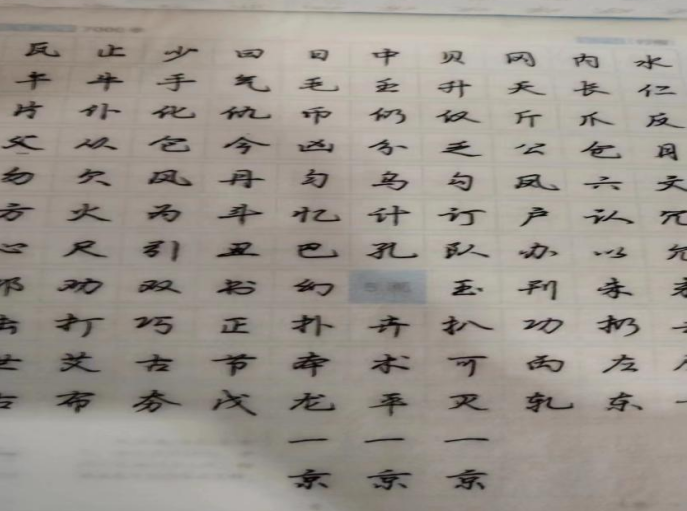 瓦 止 少 曰 日 中 贝 冈 内 水
午 牛 手 气 毛 壬 升 夭 长 仁
片 仆 化 仇 币 仍 仅 斤 爪 反
父 从 仓 今 凶 分 乏 公 仓 月
勿 欠 风 丹 匀 乌 勾 凤 六 文
方 火 为 斗 忆 计 订 户 认 冗
心 尺 引 丑 巴 孔 队 办 以 允
邓 劝 双 书 幻 玉 刊 末
击 打 巧 正 扑 卉 扒 功 扔
世 艾 古 节 本 术 可 丙 左
右 布 夯 戊 龙 平 灭 轧 东
一 一 一
京 京 京